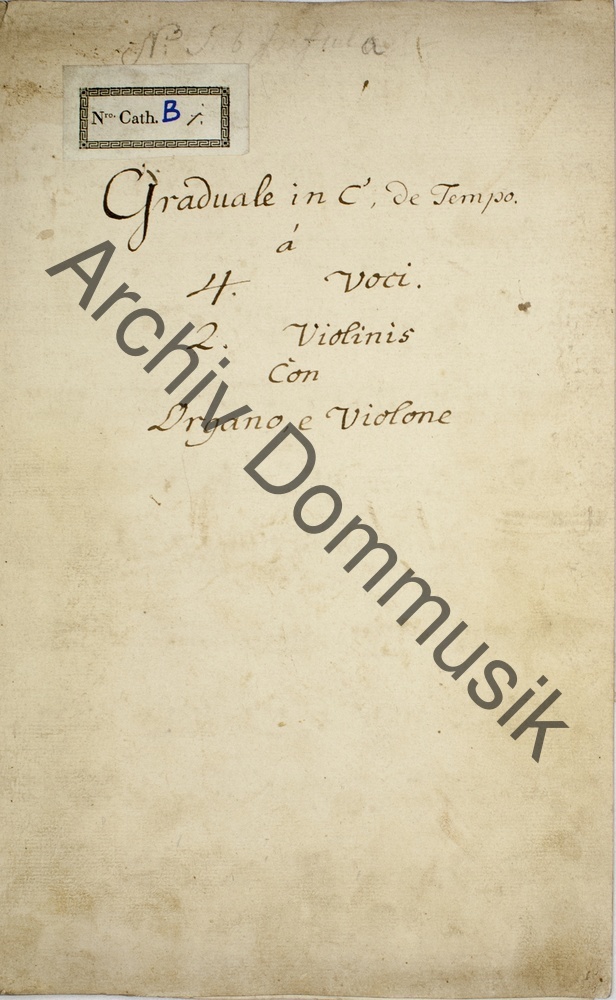 Nro. Cath. B
Graduale in C, de Tempo.
á
4. Voci.
2. Violinis
Con
Organo e Violone
Archiv Dommusik